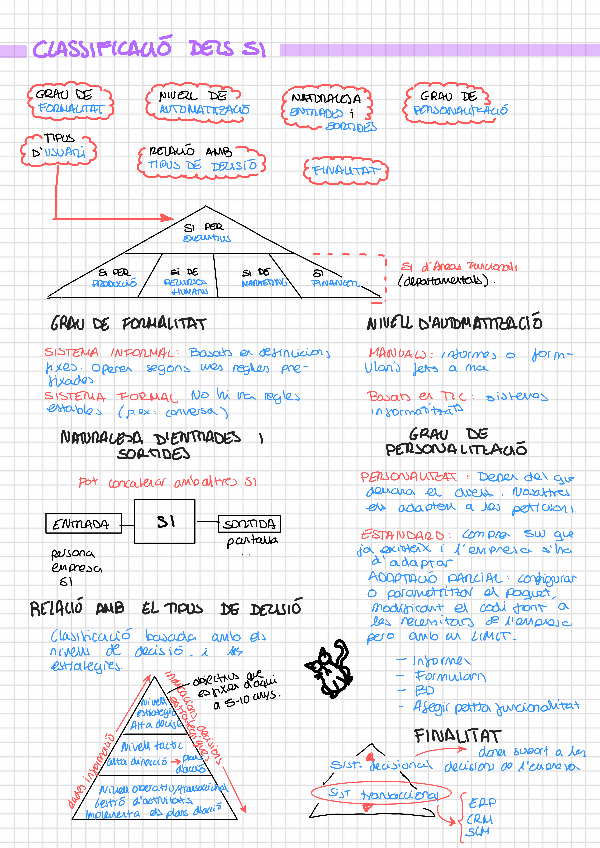 CLASSIFICACIÓ DELS SI
GRAU DE
FORMALITAT
NIVELL DE
AUTOMATITZACIÓ
NATURALESA
ENTRADES i
SORTIDES
GRAU DE
PERSONALITZACIÓ
TIPUS
D'USUARI
RELACIÓ AMB
TIPUS DE DECISIÓ
FINALITAT
SI PER
EXECUTIUS
SI PER
PRODUCCIÓ
SI DE
RECURSOS
HUMANS
SI DE
MARKETING
SI
FINANCER
SI d'Àrees Funcionals
(departamentals).
GRAU DE FORMALITAT
SISTEMA INFORMAL: Basats en definicions
fixes. Operen segons unes regles pre-
fixades
SISTEMA FORMAL No hi ha regles
establertes (p.ex: conversa)
NIVELL D'AUTOMATITZACIÓ
MANUALS: informes o form-
ularis fets a mà
Basats en TIC: sistemes
informatitzats
NATURALESA D'ENTRADES I
SORTIDES
Pot concatenar amb altres SI
ENTRADA
SI
SORTIDA
persona
empresa
SI
pantalla
...
GRAU DE
PERSONALITZACIÓ
PERSONALITZAT: Depen del que
demana el client. Nosaltres
ens adaptem a les peticions
ESTANDARD: Compra SW que
ja existeix i l'empresa s'ha
d'adaptar
ADAPTACIÓ PARCIAL: configurar
o parametritzar el paquet,
modificant el codi font a
les necessitats de l'empresa
però amb un LIMIT.
- Informes
- Formularis
- BD
- Afegir petita funcionalitat
RELACIÓ AMB EL TIPUS DE DECISIÓ
Classificació basada amb els
nivells de decisió i les
estratègies.
objectius que
es fixen d'aquí
a 5-10 anys.
Nivell
estratègic
Alta decisió
Nivell tàctic
alta direcció → plans
d'acció
Nivell operatiu/transaccional
Gestió d'activitats
Implementa els plans d'acció
dades informació
indicacions, decisions
estratègiques
FINALITAT
Sist. decisional
donar suport a les
decisions de l'empresa
Sist transaccional
ERP
CRM
SCM